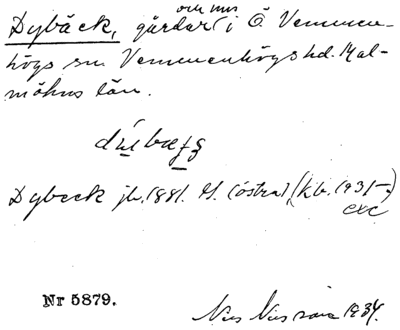 och mus
Dybäck, gårdar i Ö Vemmen-
högs sn. Vemmenhögs hd. Mal-
möhus län.
Dybeck jb. 1881. G. (östra) (kb. 1931–)
exc
Nr 5879.
Nils Nilsson 1934.